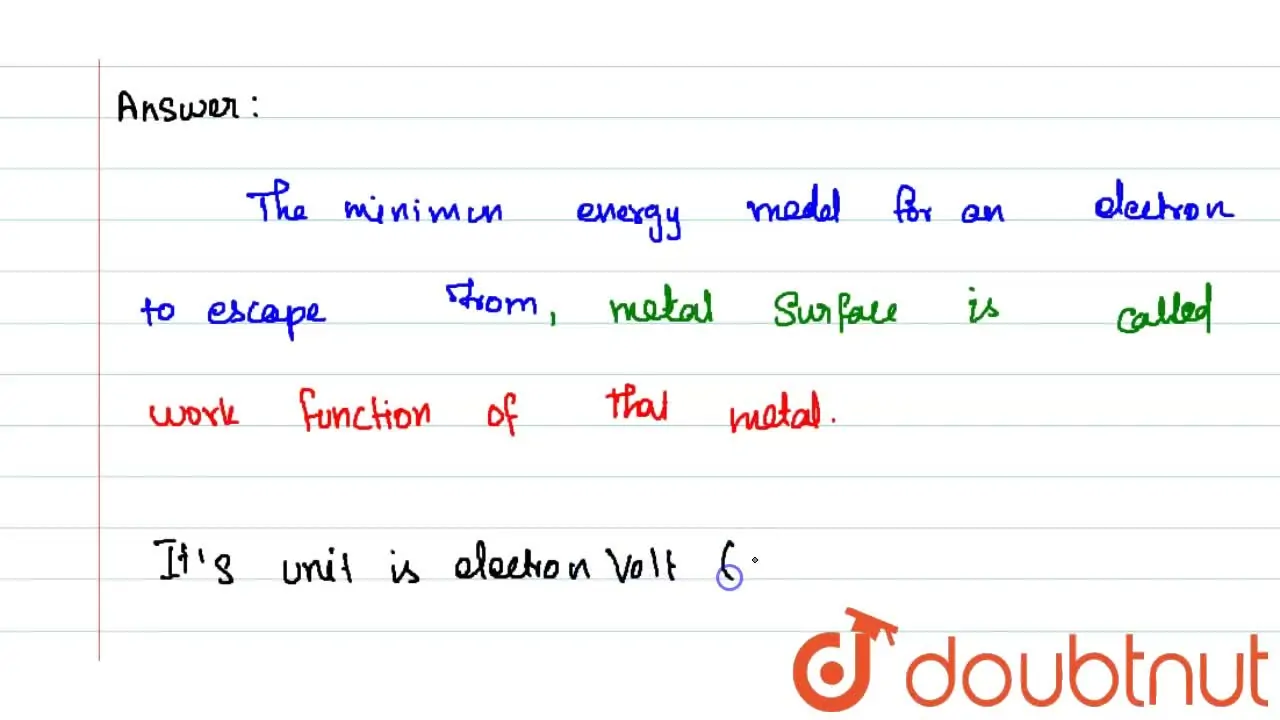 Answer:
The minimun energy medel for an electron
to escape from, metal surface is called
work function of that metal.
It's unit is electron Volt (
doubtnut